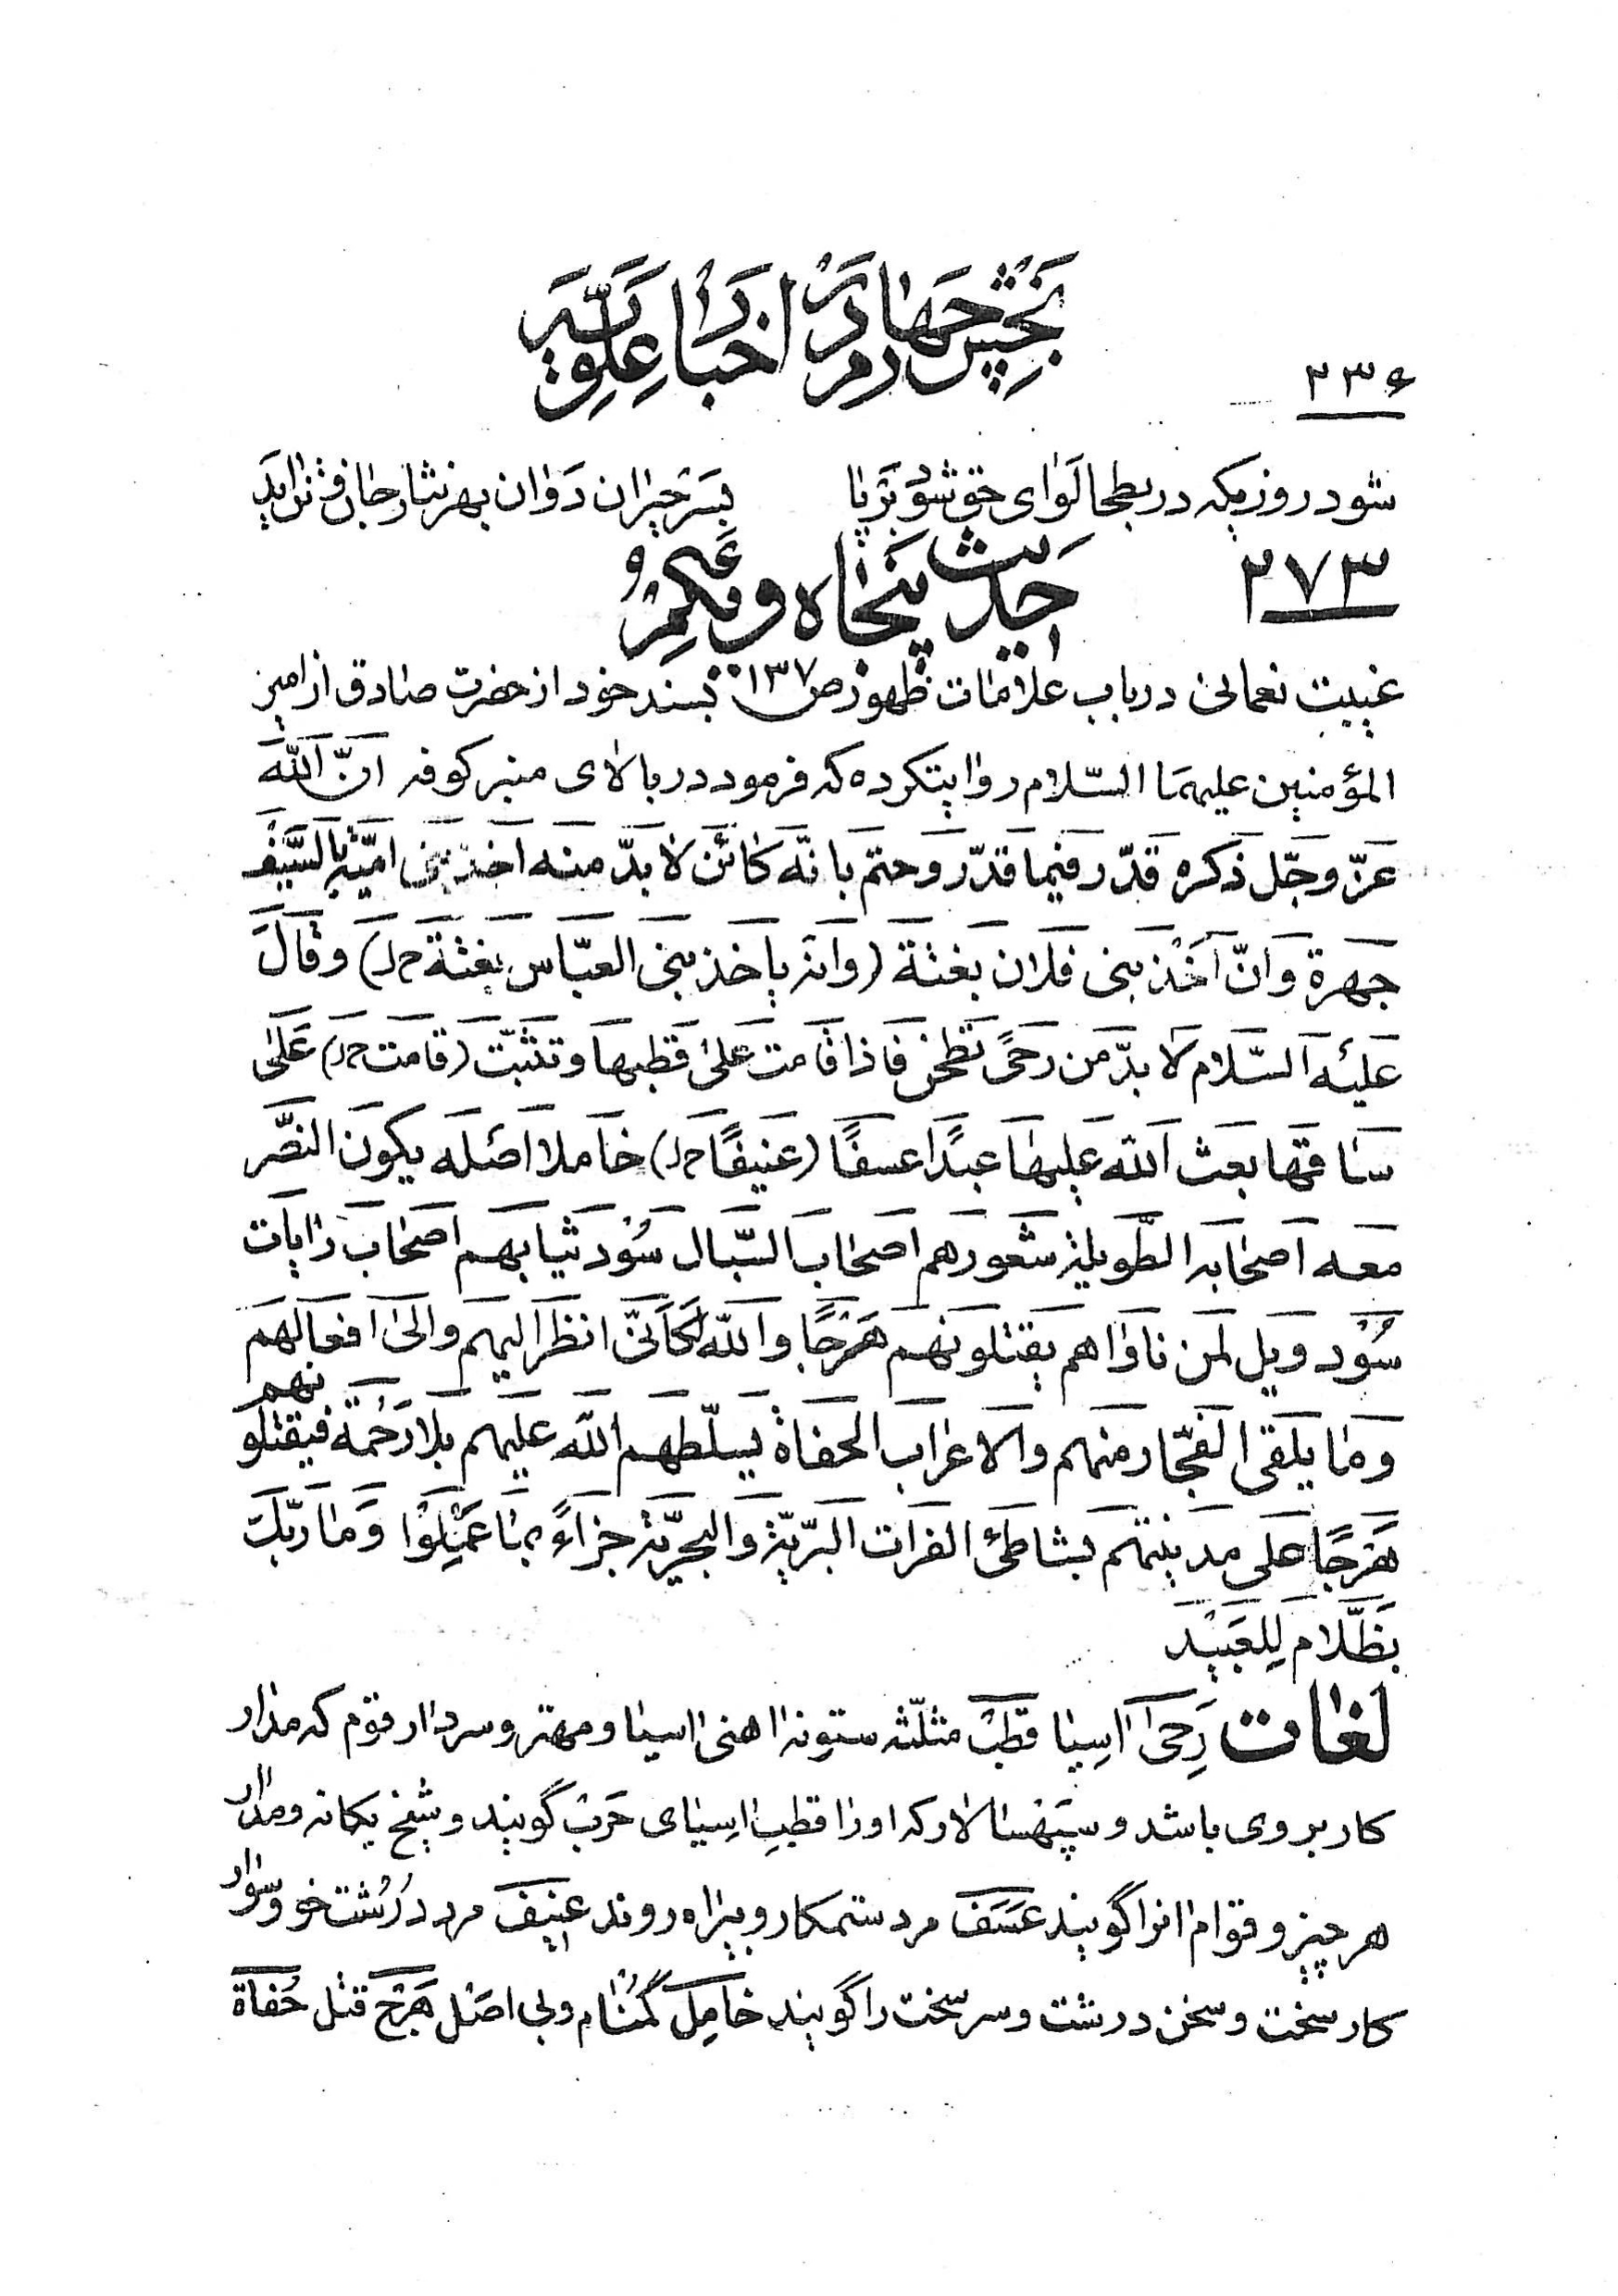 بخش چهارم در اخبار علویه
۲۳۶
شود روزیکه در بطحا لوای حق شود برپا بسر حیران دوان بهر نثار جان
۲۷۳
حدیث پنجاه و یکم
غیبت نعمانی در باب علامات ظهور ص۱۳۷ بسند خود از حضرت صادق از امیر
المؤمنین علیهما السّلام روایتکرده که فرمود در بالای منبر کوفه انّ اللّه
عزّ وجّل ذکره قدّر فیما قدّر وحتم بانّه کائن لابدّ منه اخذ بنی امیّة بالسّیف
جهرة وانّ اخذ بنی فلان بغتة (وانه یاخذ بنی العبّاس بغتة خ‌ل) وقال
علیه السّلام لا بدّ من رحیً تطحن فاذا قامت علی قطبها وتثبّت (قامت خ‌ل) علی
ساقها بعث اللّه علیها عبدًا عسفًا (عنیفًا خ‌ل) خاملا اصله یکون النّصر
معه اصحابه الطّویلة شعورهم اصحاب السّبال سُود ثیابهم اصحاب رایات
سُود ویل لمن ناواهم یقتلونهم هرجًا واللّه لکانّی انظر الیهم والی افعالهم
وما یلقی الفجّار منهم والاعراب الحفاة یسلّطهم اللّه علیهم بلا رحمة فیقتلونهم
هرجًا علی مدینتهم بشاطئ الفرات البرّیّة والبحریّة جزاءً بما عملوا وما ربّک
بظّلام للعبید
لغات رحی اسیا قطب مثلّثه ستونه اهنی اسیا و مهتر و سردار قوم که مدار
کار بر وی باشد و سپهسالار که او را قطب اسیای حرب گویند و شیخ یکانه و مدار
هر چیز و قوام انرا گویند عسف مرد ستمکار و بیراه رونده عنیف مرد درشت خو و سوار
کار سخت و سخن درشت و سر سخت را گویند خامل گمنام و بی اصل هرج قتل حفاة